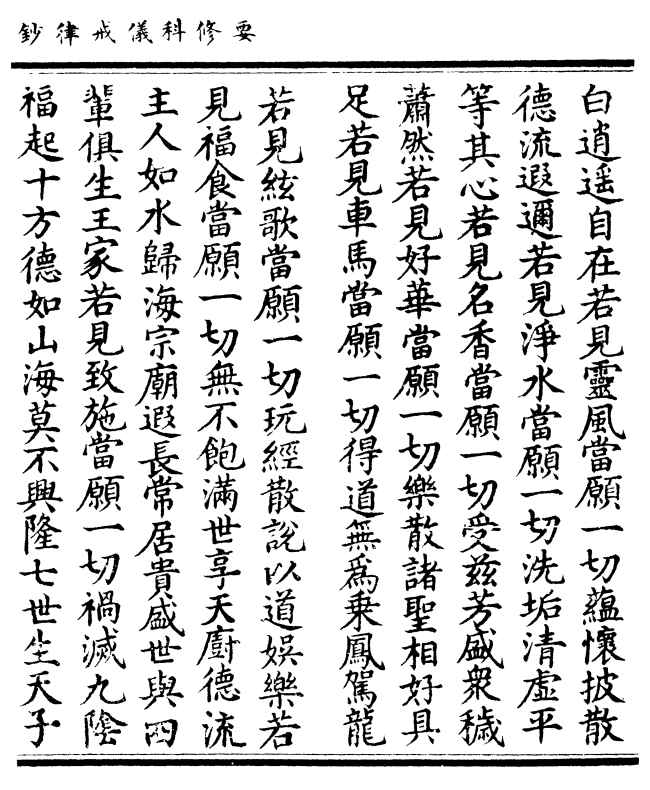 要修科儀戒律鈔
白逍遥自在若見靈風當願一切蘊懷披散
德流遐邇若見淨水當願一切洗垢清虛平
等其心若見名香當願一切受茲芳盛衆穢
蕭然若見好華當願一切樂散諸聖相好具
足若見車馬當願一切得道無爲乗鳳駕龍
若見絃歌當願一切玩經散說以道娛樂若
見福食當願一切無不飽滿世享天廚德流
主人如水歸海宗廟遐長常居貴盛世與四
輩俱生王家若見致施當願一切禍滅九陰
福起十方德如山海莫不興隆七世生天子